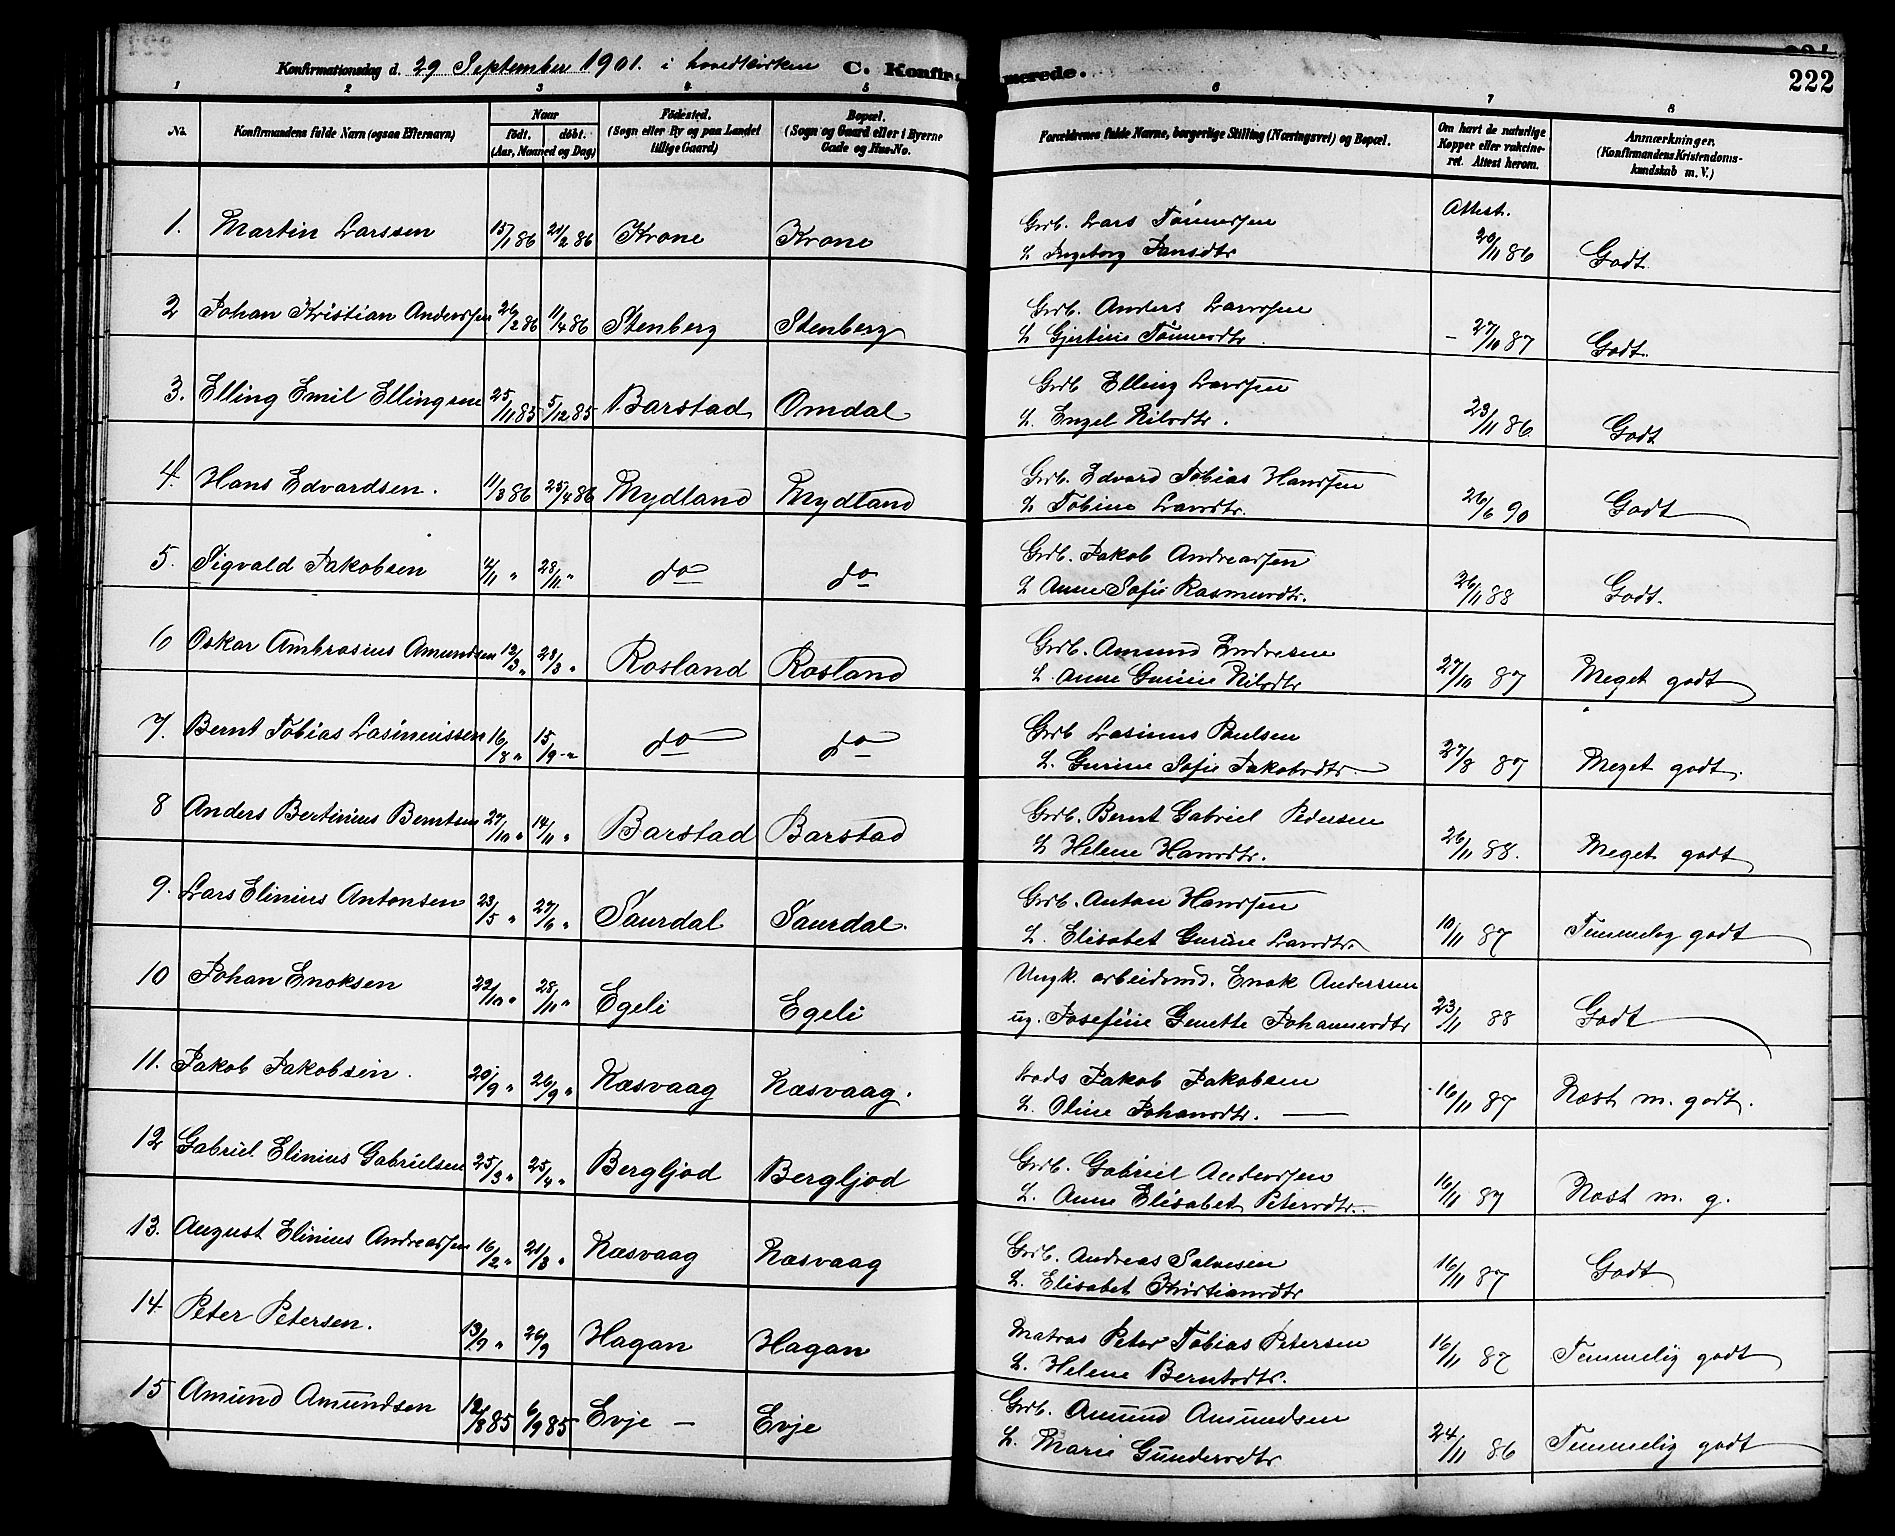 222
Konfirmationsdag d. 29 September 1901. i hovedkirken C. Konfirmerede.
1 2 3 4 5 6 7 8
No. Konfirmandens fulde Navn (ogsaa Efternavn) Naar født. døbt. (Aar, Maaned og Dag) Fødested. (Sogn eller By og paa Landet tillige Gaard) Bopæl. (Sogn og Gaard eller i Byerne Gade og Hus-No. Forældrenes fulde Navne, borgerlige Stilling (Næringsvei) og Bopæl. Om havt de naturlige Kopper eller vakcineret. Attest herom. Anmærkninger. (Konfirmandens Kristendomskundskab m. V.)
1. Martin Larssen 15/1 86 21/2 86 Krone Krone Grb. Lars Tønnessen Attest.
& Ingeborg Jansdtr 20/11 86 Godt
2 Johan Kristian Anderssen 26/2 86 11/4 86 Stenberg Stenberg Grb. Anders Larssen
& Gjertine Tønnesdtr. - 27/10 87 Godt.
3. Elling Emil Ellingsen 25/11 85 5/12 85 Barstad Omdal Grb Elling Larssen
& Engel Nilsdtr. 23/11 86 Godt
4. Hans Edvardsen. 11/3 86 25/4 86 Mydland Mydland Grb. Edvard Tobias Hanssen
& Tobine Larsdtr. 26/6 90 Godt
5. Sigvald Jakobsen 4/11 " 28/11 " do do Grb. Jakob Andreassen
& Anne Sofie Rasmusdtr. 26/11 88 Godt.
6 Oskar Ambrosius Amundsen 12/3 " 28/3 " Rosland Rosland Grb. Amund Endresen
& Anne Gurine Nilsdtr 27/10 87 Meget godt
7. Bernt Tobias Lasimussen 16/8 " 15/9 " do do Grb Lasimus Paulsen
& Gurine Sofie Jakobsdtr. 27/8 87 Meget godt.
8 Anders Bertinius Berntsen 27/10 " 14/11 " Barstad Barstad Grb. Bernt Gabriel Pedersen
& Helene Hansdtr. 26/11 88. Meget godt
9. Lars Elinius Antonsen 23/5 " 27/6 " Saurdal Saurdal. Grb. Anton Hanssen
& Elisabet Gurine Larsdtr. 10/11 87 Temmelig godt
10 Johan Enoksen 22/10 " 28/11 " Egeli Egeli Ungk. arbeidsmd. Enok Anderssen
ug. Josefine Genette Johannesdtr 23/11 88 Godt
11. Jakob Jakobsen. 20/9 " 26/9 " Næsvaag Næsvaag. Jakob Jakobsen
& Oline Johansdtr. 16/11 87 Næst m. godt.
12 Gabriel Elinius Gabrielsen 25/3 " 25/4 " Bergljod Bergljod Grb. Gabriel Anderssen
& Anne Elisabet Petersdtr. 16/11 87 Næst m. g.
13. August Elinius Andreassen 16/2 " 21/3 " Næsvaag Næsvaag Grb. Andreas Salvesen
& Elisabet Kristiansdtr 16/11 87 Godt
14 Peter Petersen. 13/9 " 26/9 Hagan Hagan Matros Peter Tobias Petersen
& Helene Berntsdtr. 16/11 87 Temmelig godt
15 Amund Amundsen 12/8 85 6/9 85 Evje - Evje Grb. Amund Amundsen
& Marie Gundersdtr 24/11 86 Temmelig godt